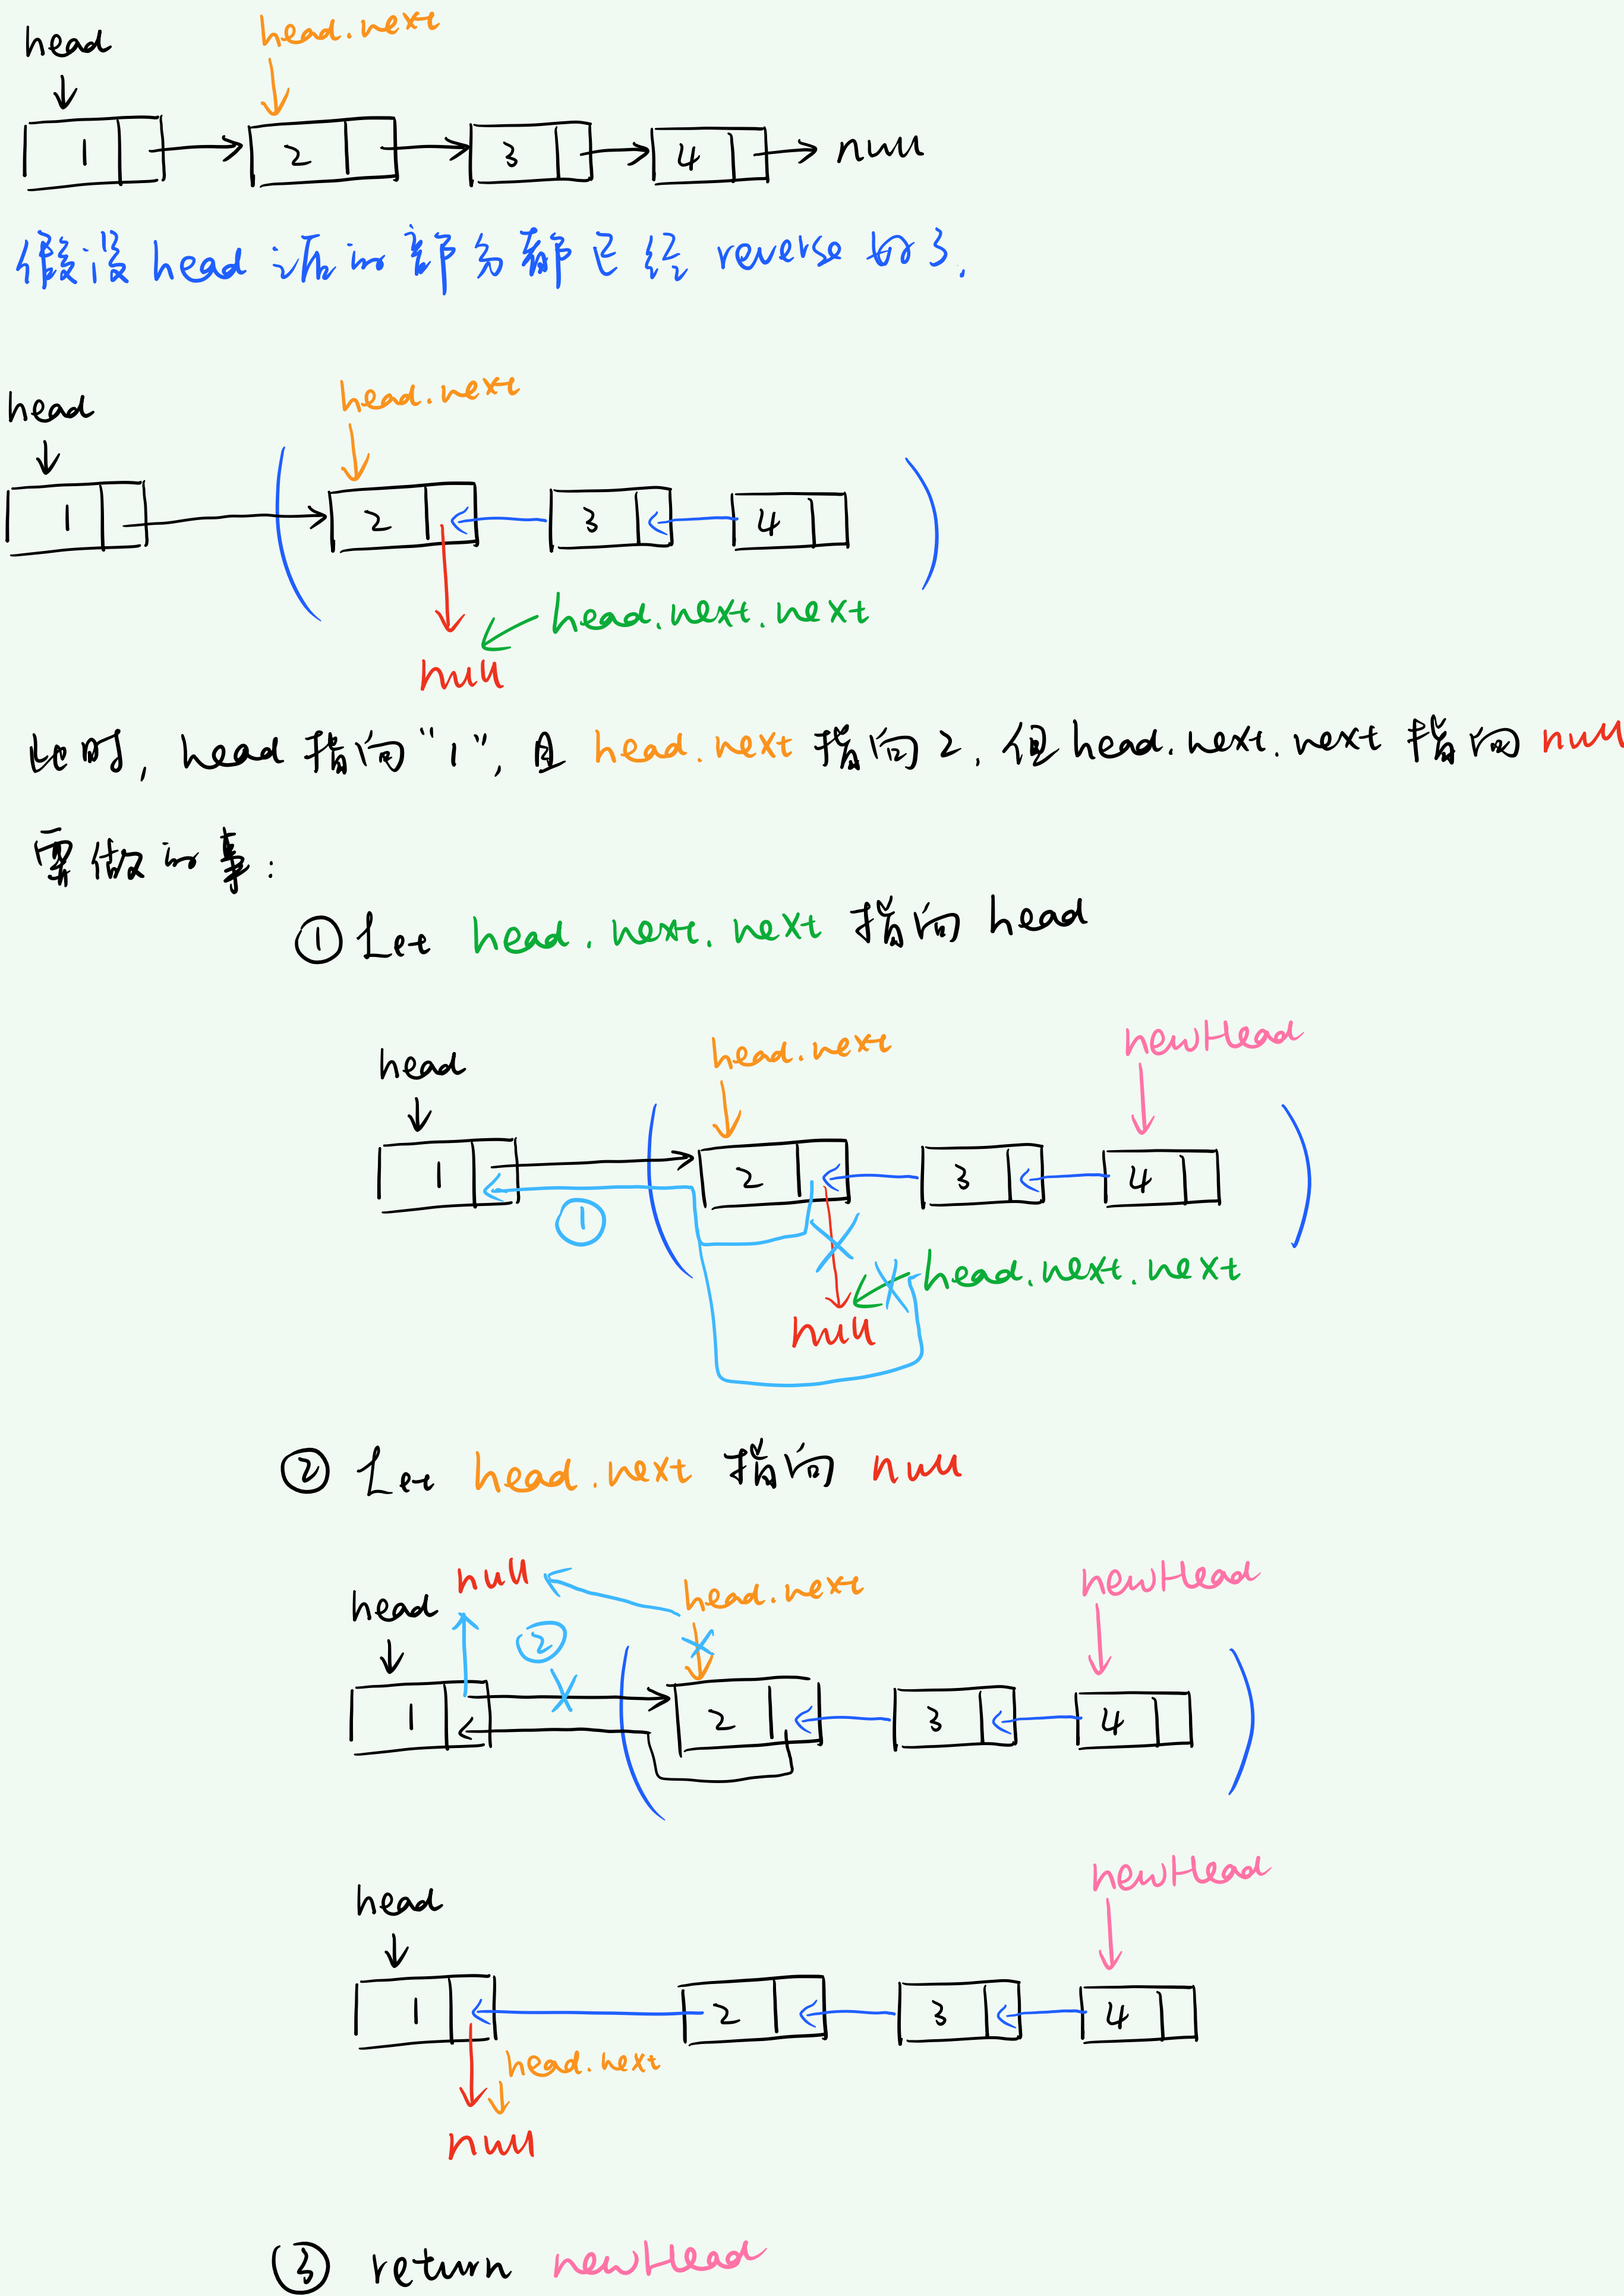 head head.next
1 2 3 4 null
假设 head 之后的部分都已经 reverse 好了.
head head.next
1 2 3 4
head.next.next
null
此时, head 指向“1”, 且 head.next 指向2, 但 head.next.next 指向 null
需做的事:
① Let head.next.next 指向 head
head head.next newHead
1 2 3 4
①
head.next.next
null
② Let head.next 指向 null
head null head.next newHead
②
1 2 3 4
head newHead
1 2 3 4
head.next
null
③ return newHead